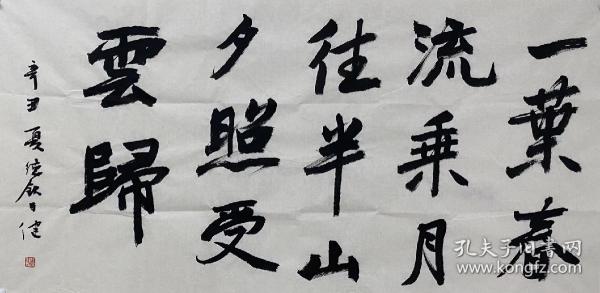 一葉春
流乗月
往半山
夕照受
雲歸
辛丑夏
健
孔夫子旧书网
www.kongfz.com